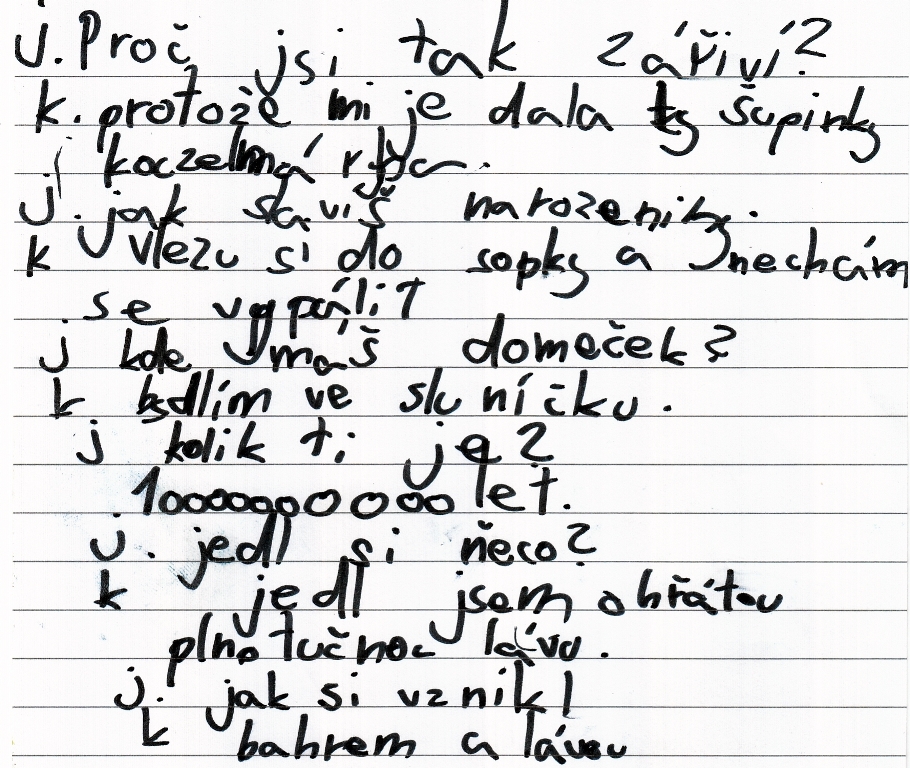 j. Proč jsi tak zářiví?
k. protože mi je dala ty šupinky
j kouzelná ryba.
j. jak slavíš narozeniny.
k vlezu si do sopky a nechám
se vypálit
j kde máš domeček?
k bydlím ve sluníčku.
j kolik ti je?
10000000000 let.
j. jedl si ňeco?
k jedl jsem ohřátou
plnotučnou lávu.
j. jak si vznikl
k bahrem a lávou